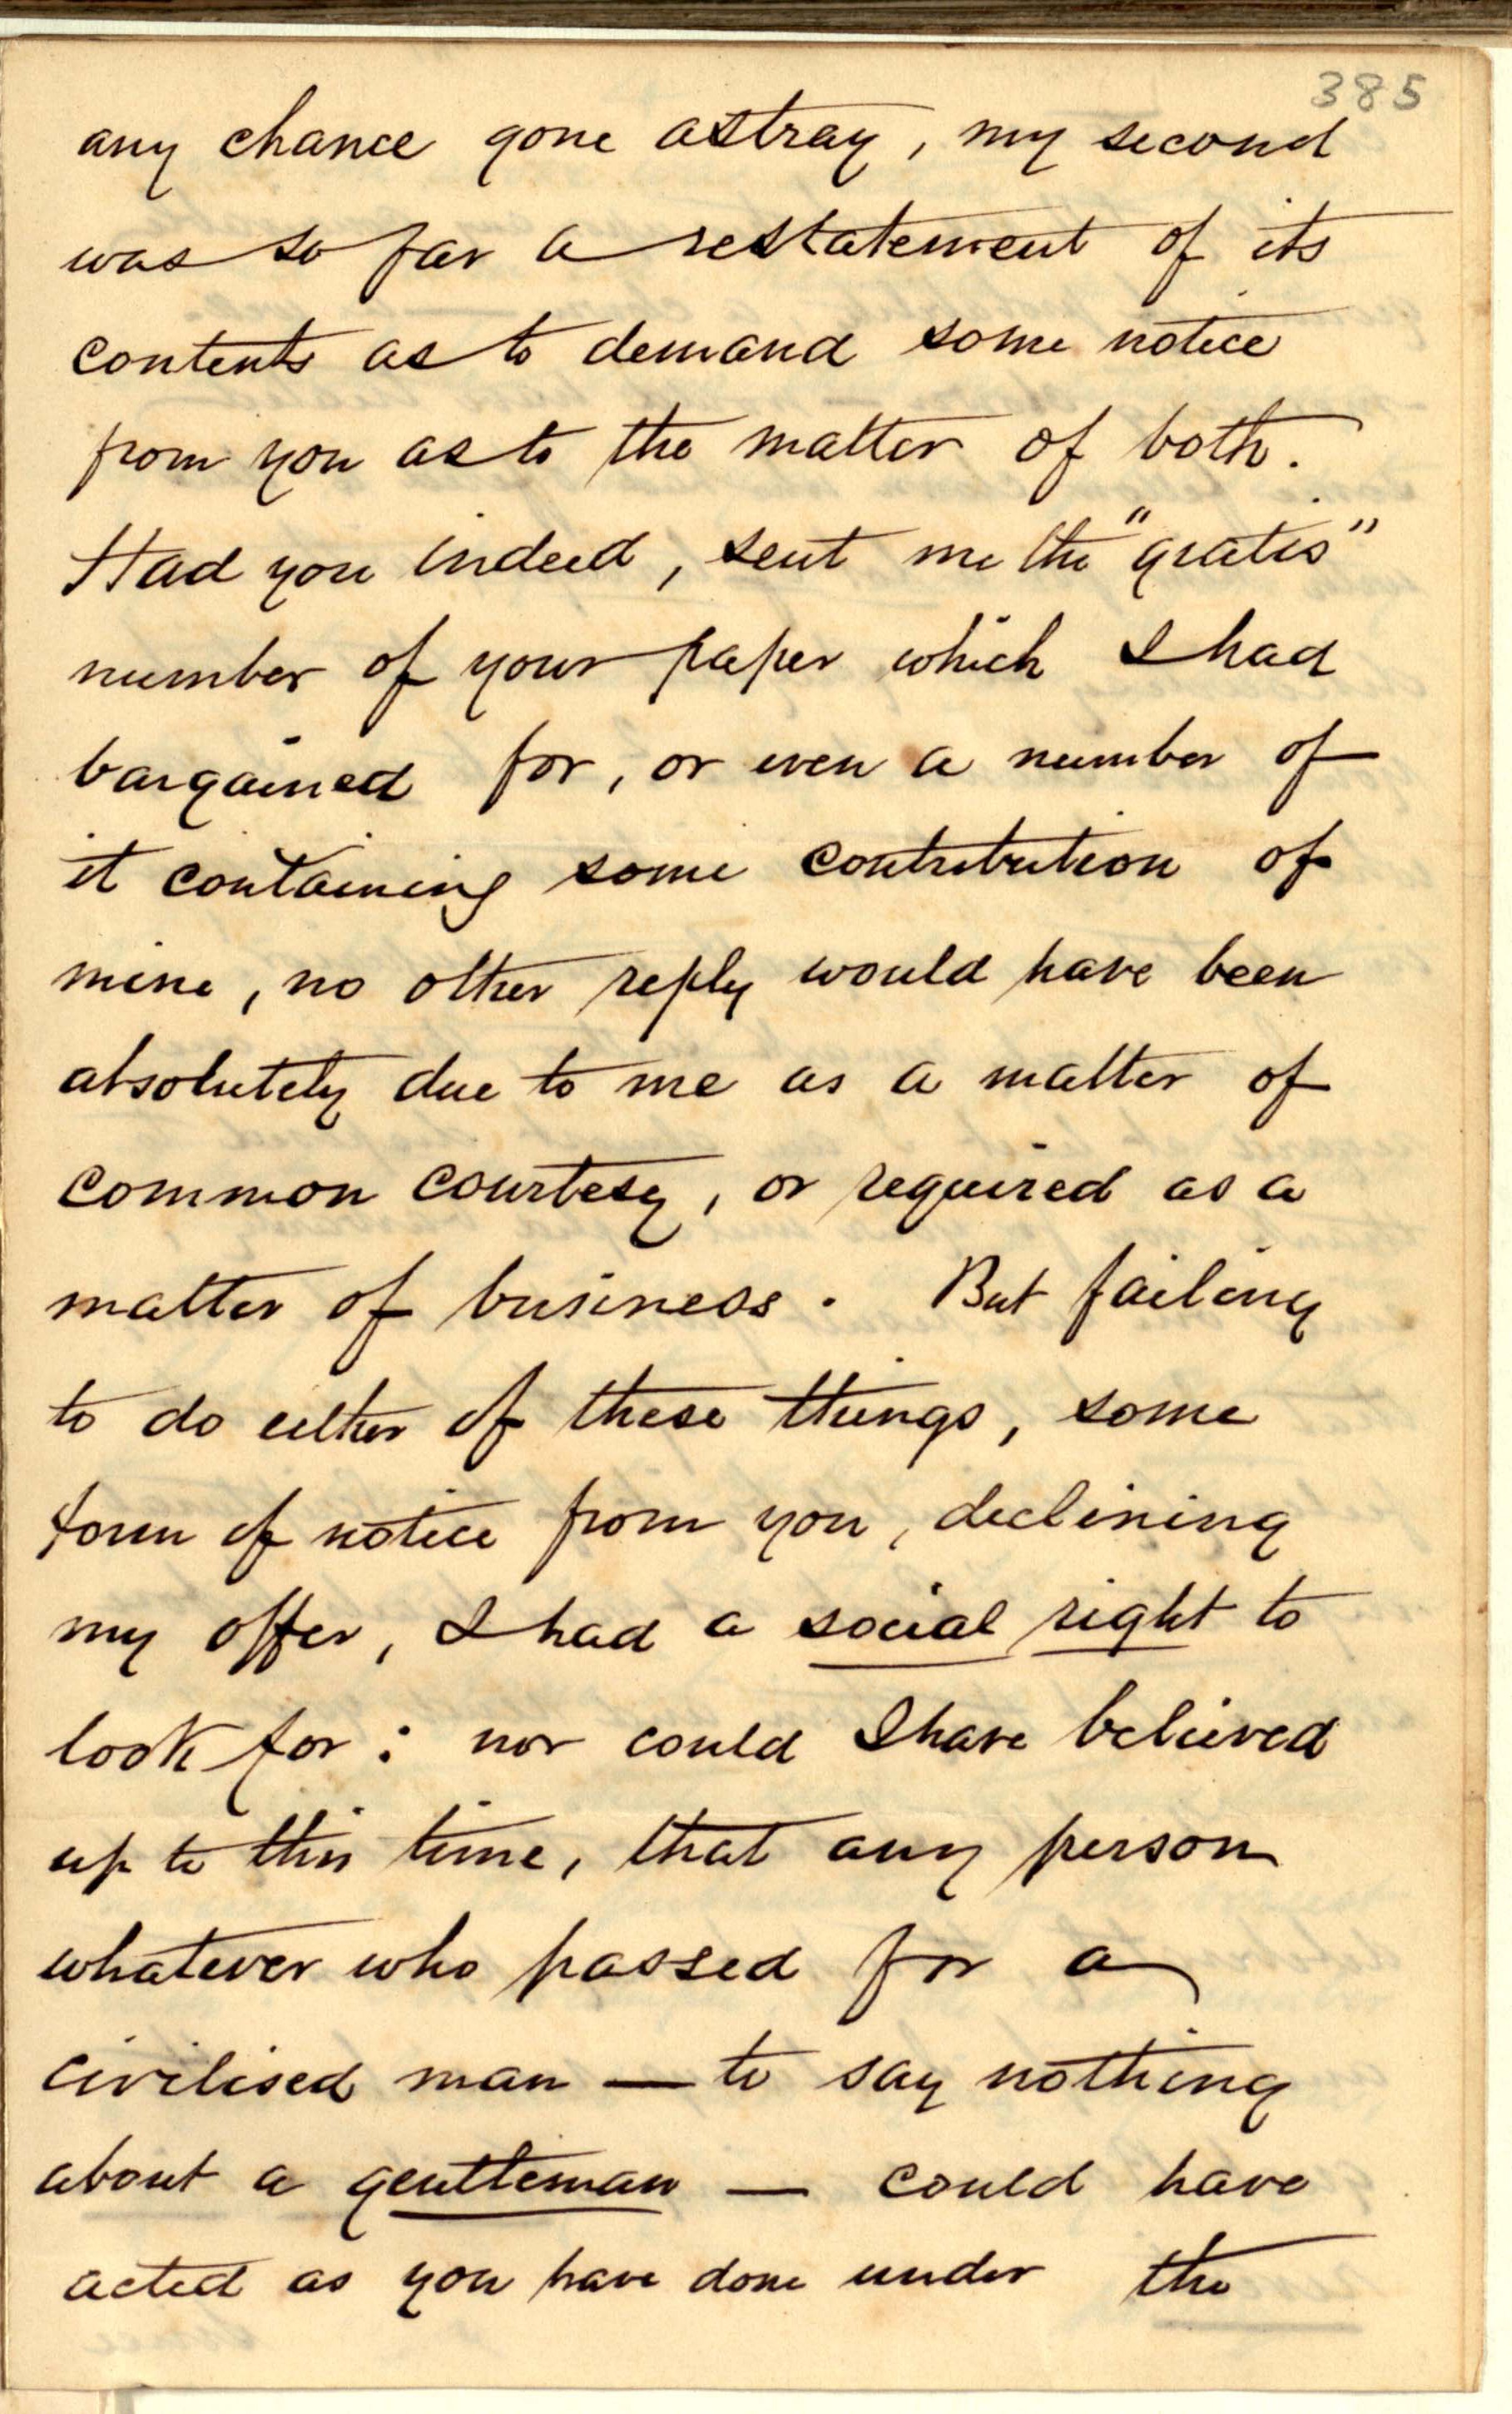 385
any chance gone astray, my second
was so far a restatement of its
contents as to demand some notice
from you as to the matter of both.
Had you indeed, sent me the "gratis"
number of your paper which I had
bargained for, or even a number of
it containing some contribution of
mine, no other reply would have been
absolutely due to me as a matter of
common courtesy, or required as a
matter of business. But failing
to do either of these things, some
form of notice from you, declining
my offer, I had a social right to
look for: nor could I have believed
up to this time, that any person
whatever who passed for a
civilised man — to say nothing
about a gentleman — could have
acted as you have done under the